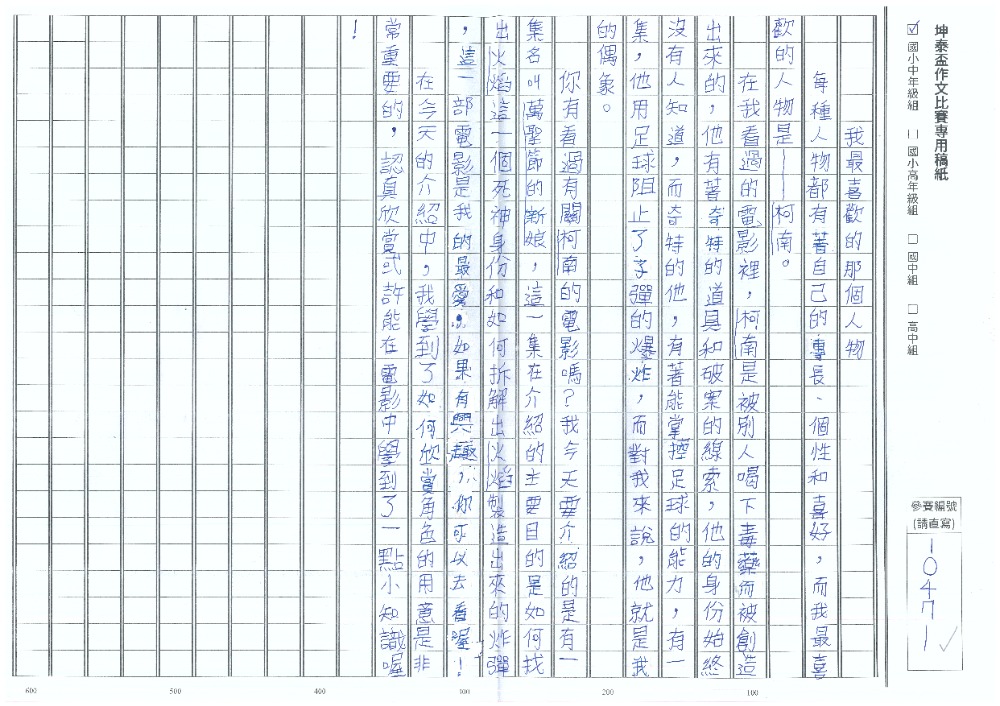 坤泰盃作文比賽專用稿紙
☑ 國小中年級組 □ 國小高年級組 □ 國中組 □ 高中組
參賽編號
(請直寫)
10471
我最喜歡的那個人物
每種人物都有著自己的專長、個性和喜好，而我最喜
歡的人物是——柯南。
在我看過的電影裡，柯南是被別人喝下毒藥而被創造
出來的，他有著奇特的道具和破案的線索，他的身份始終
沒有人知道，而奇特的他，有著能掌控足球的能力，有一
集，他用足球阻止了子彈的爆炸，而對我來說，他就是我
的偶象。
你有看過有關柯南的電影嗎？我今天要介紹的是有一
集名叫萬聖節的新娘，這一集在介紹的主要目的是如何找
出火焰這一個死神身份和如何拆解出火焰製造出來的炸彈
，這一部電影是我的最愛。如果有興趣，你可以去看喔！
在今天的介紹中，我學到了如何欣賞角色的用意是非
常重要的，認真欣賞或許能在電影中學到了一點小知識喔
！
600 500 400 300 200 100